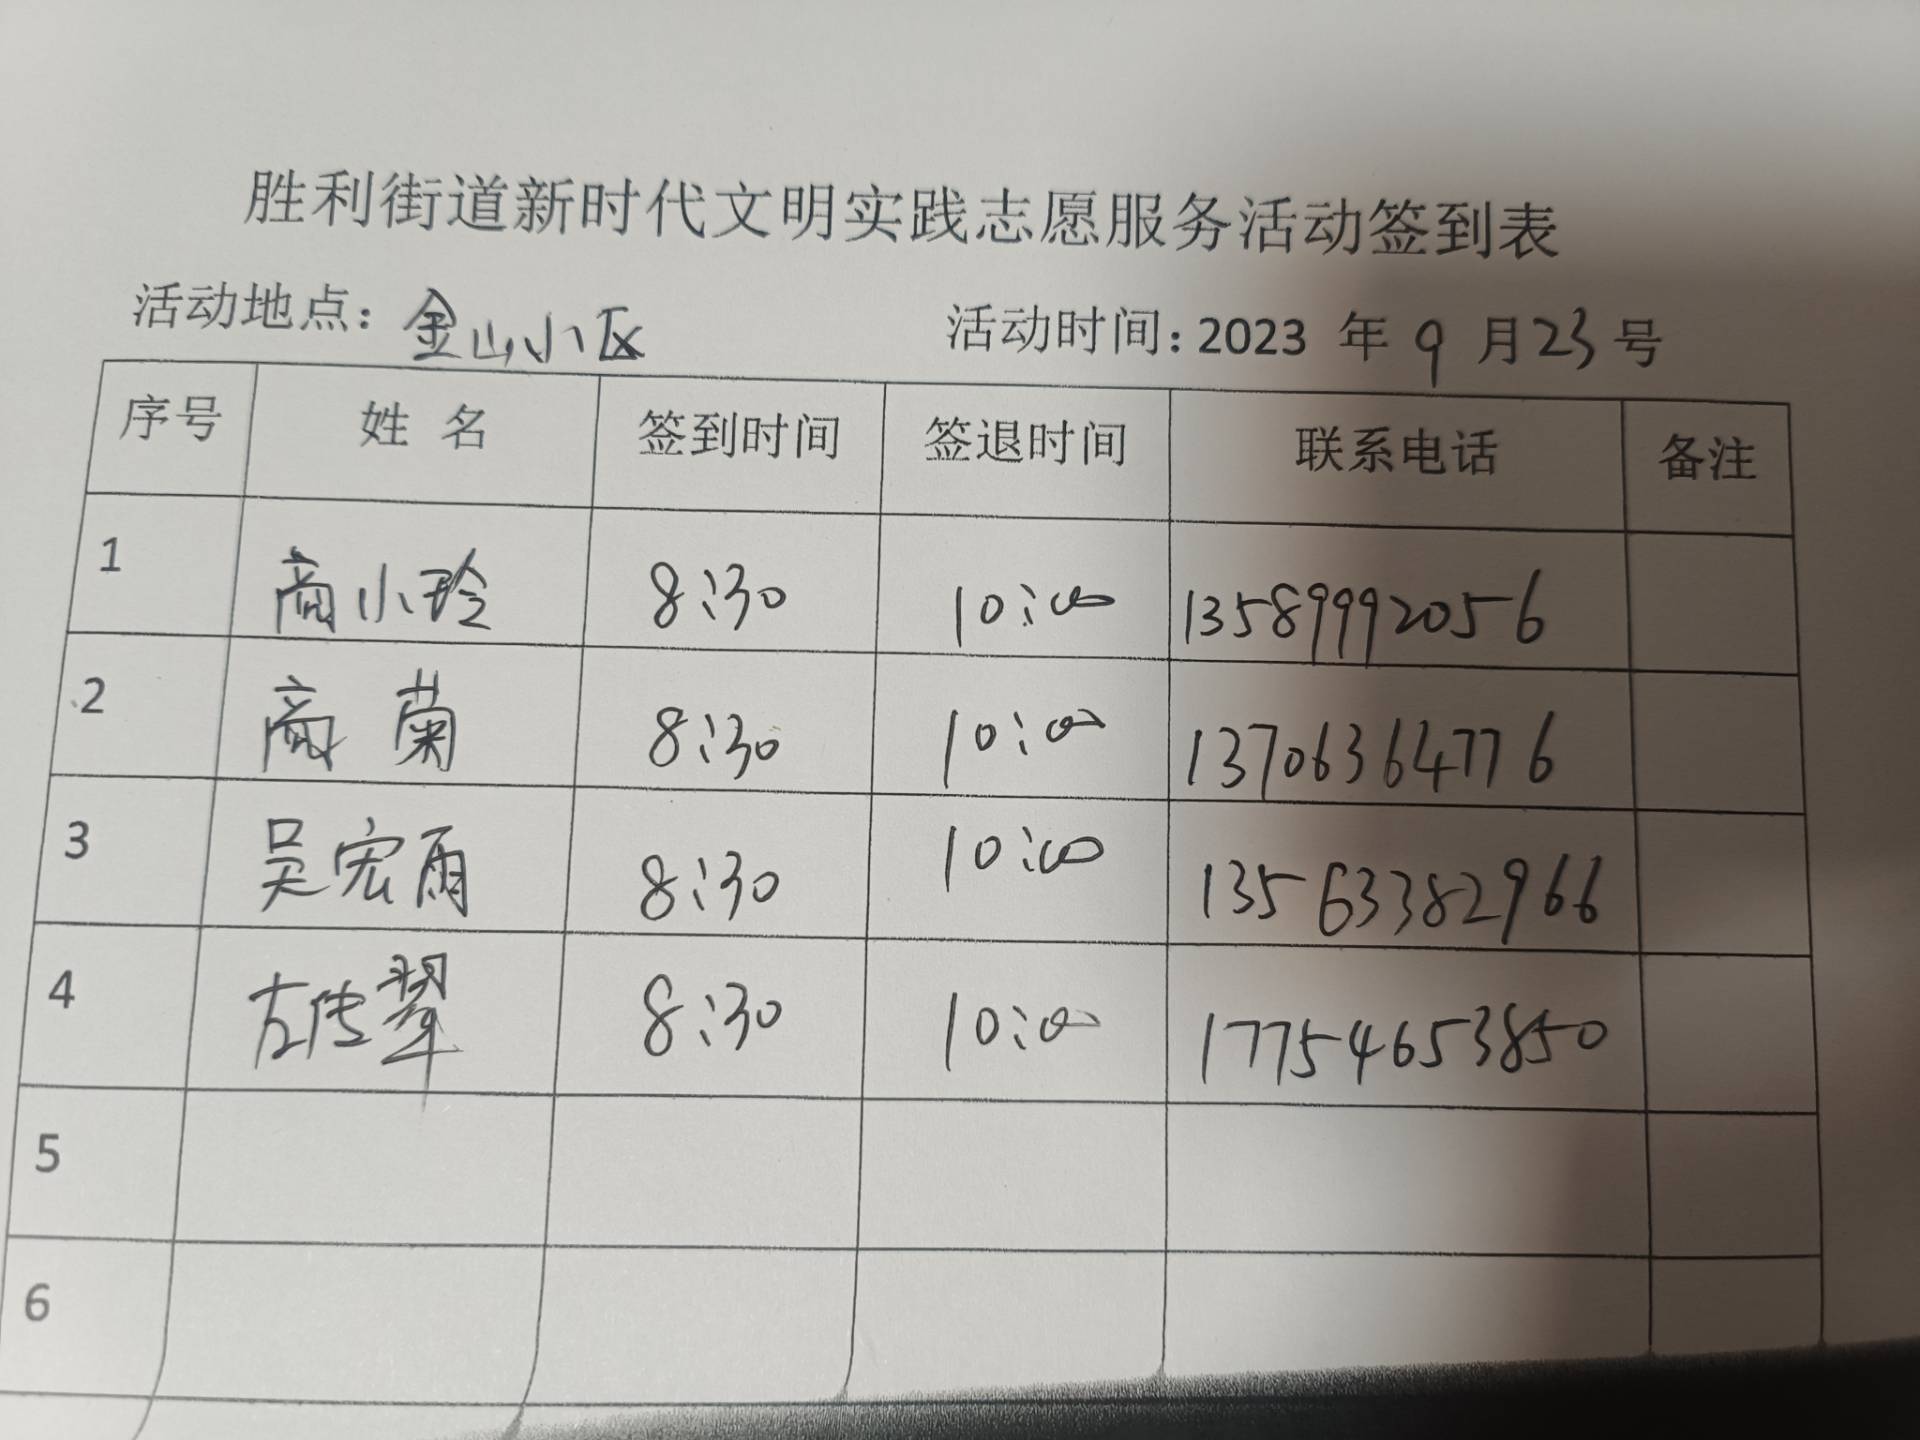 胜利街道新时代文明实践志愿服务活动签到表
活动地点：金山小区 活动时间：2023 年 9 月 23 号
序号 姓 名 签到时间 签退时间 联系电话 备注
1 商小玲 8:30 10:00 13589992056
2 商 菊 8:30 10:00 13706364776
3 吴宏雨 8:30 10:00 13563382966
4 左传翠 8:30 10:00 17754653850
5
6